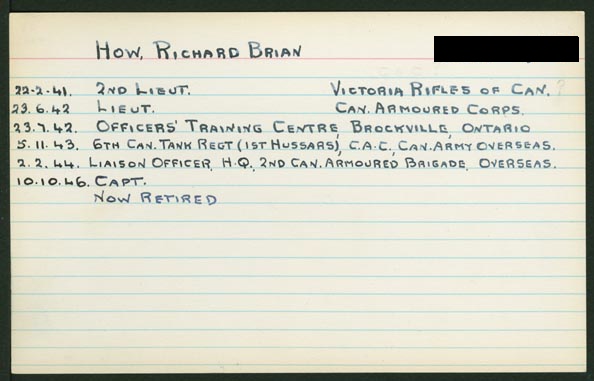 How, Richard Brian
22-2-41. 2nd Lieut. Victoria Rifles of Can. ?
23.6.42 Lieut. Can. Armoured Corps.
23.7.42. Officers' Training Centre, Brockville, Ontario
5.11.43. 6th Can. Tank Regt (1st Hussars), C.A.C., Can. Army Overseas.
2.2.44. Liaison Officer, H.Q. 2nd Can. Armoured Brigade, Overseas.
10.10.46. Capt.
Now Retired